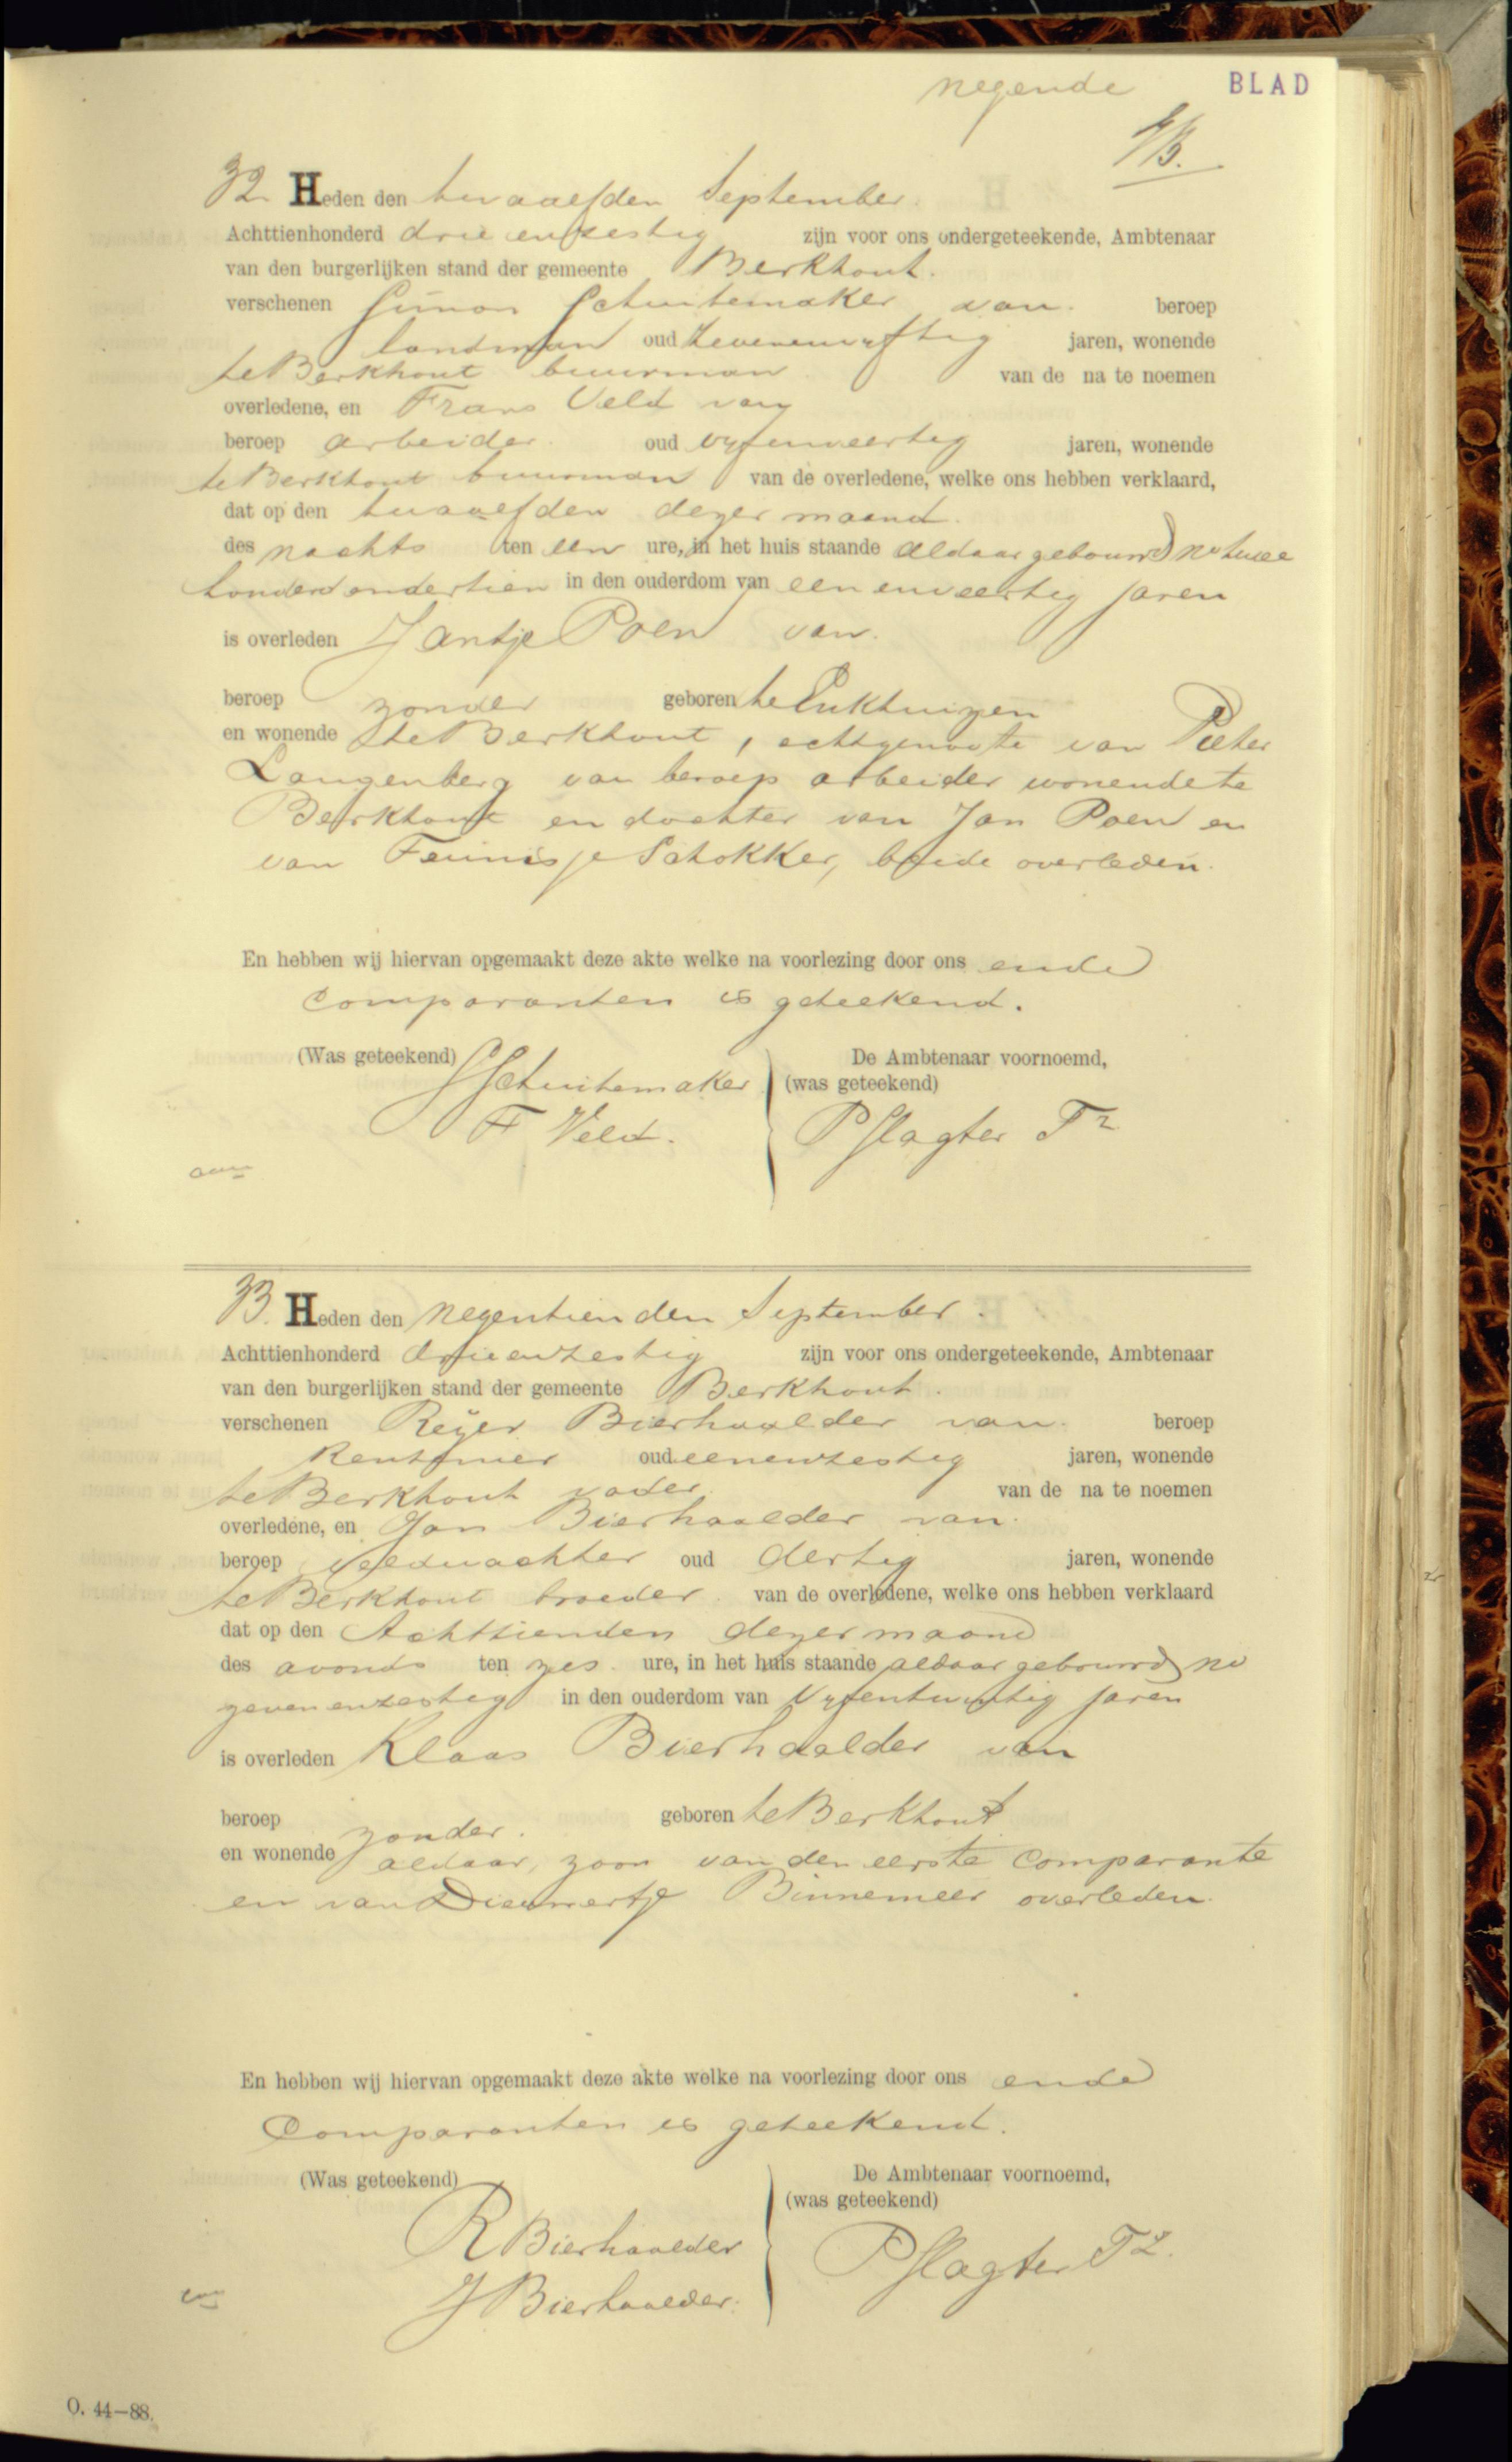 negende BLAD
32 Heden den twaalfden September
Achttienhonderd drie en zestig zijn voor ons ondergeteekende, Ambtenaar
van den burgerlijken stand der gemeente Berkhout.
verschenen Simon Schuitemaker van beroep
landman oud zevenenvyftig jaren, wonende
te Berkhout buurman van de na te noemen
overledene, en Frans Veld van
beroep arbeider oud vyfenveertig jaren, wonende
te Berkhout buurman van de overledene, welke ons hebben verklaard,
dat op den twaalfden dezer maand
des nachts ten een ure, in het huis staande aldaar gebuurd no twee
honderd en dertien in den ouderdom van een en veertig jaren
is overleden Jantje Poen van
beroep zonder geboren te Enkhuizen
en wonende te Berkhout, echtgenoote van Pieter
Langenberg van beroep arbeider wonende te
Berkhout en dochter van Jan Poen en
van Teunisje Schokker, beide overleden.
En hebben wij hiervan opgemaakt deze akte welke na voorlezing door ons en de
comparanten is geteekend.
(Was geteekend) De Ambtenaar voornoemd,
S Schuitemaker (was geteekend)
F Veld. P Slagter Tz
33. Heden den negentienden September.
Achttienhonderd drie en zestig zijn voor ons ondergeteekende, Ambtenaar
van den burgerlijken stand der gemeente Berkhout.
verschenen Reijer Bierhaalder van beroep
Rentenier oud eenenzestig jaren, wonende
te Berkhout vader van de na te noemen
overledene, en Jan Bierhaalder van
beroep veldwachter oud dertig jaren, wonende
te Berkhout broeder van de overledene, welke ons hebben verklaard
dat op den Achttienden dezer maand
des avonds ten zes ure, in het huis staande aldaar gebuurd no
zeven en zestig in den ouderdom van Vyfentwintig jaren
is overleden Klaas Bierhaalder van
beroep zonder. geboren te Berkhout
en wonende aldaar, zoon van den eerste Comparante
en van Dieuwertje Binnemeer overleden.
En hebben wij hiervan opgemaakt deze akte welke na voorlezing door ons en de
Comparanten is geteekend.
(Was geteekend) De Ambtenaar voornoemd,
(was geteekend)
R Bierhaalder P Slagter Tz.
J Bierhaalder.
O. 44-88.